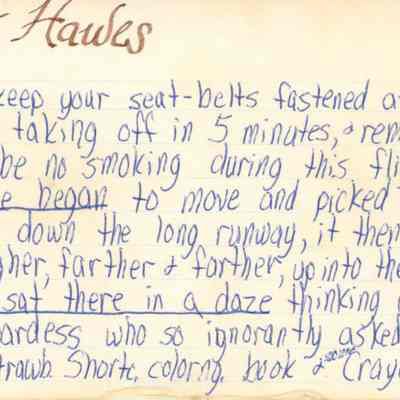 Hawes
keep your seat-belts fastened a
taking off in 5 minutes, & rem
be no smoking during this fli
e began to move and picked
down the long runway, it then
gher, farther & farther, up into the
sat there in a daze thinking
ardess who so ignorantly asked
trawb. Shortc, colorng, book & Cray